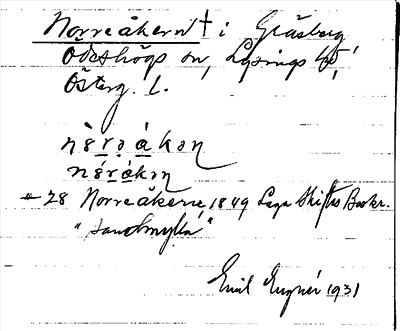 Norreåkern † i Gräsberg
Ödeshögs sn, Lysings hd,
Österg. l.
nòrəákən
nórákən
28 Norreåkerne, 1849 Laga Skiftes Beskr.
"sandmylla"
Emil Engnér 1931